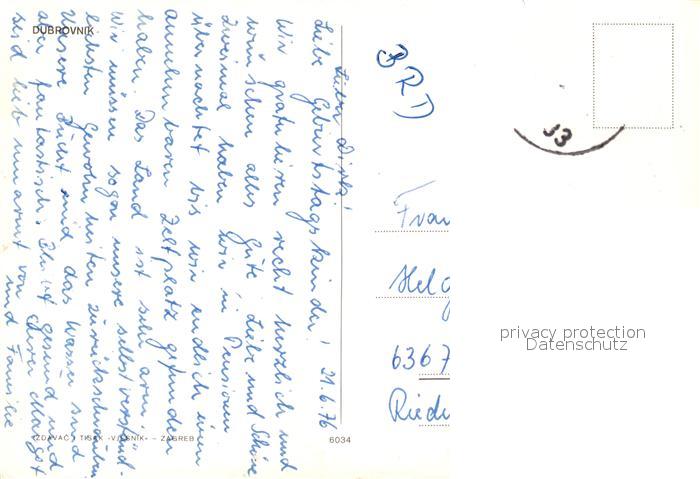 DUBROVNIK
Liebe Geburtstagskinder! 21.6.76
Wir gratulieren recht herzlich und
wünschen alles Gute Liebe und Schöne
Zweimal haben wir in Pensionen
übernachtet bis wir endlich einen
annehmbaren Zeltplatz gefunden
haben. Das Land ist sehr arm.
Wir müssen sogar unsere selbstverständ-
lichsten Gewohnheiten zurückschrauben
Unsere Bucht und das Wasser sind
aber fantastisch. Bleibt gesund und
seid lieb umarmt von Eurer Margot
und Familie
IZDAVAČ I TISAK »VJESNIK« – ZAGREB
6034
BRD
Frau
Helg
6367
Ried
33
privacy protection
Datenschutz